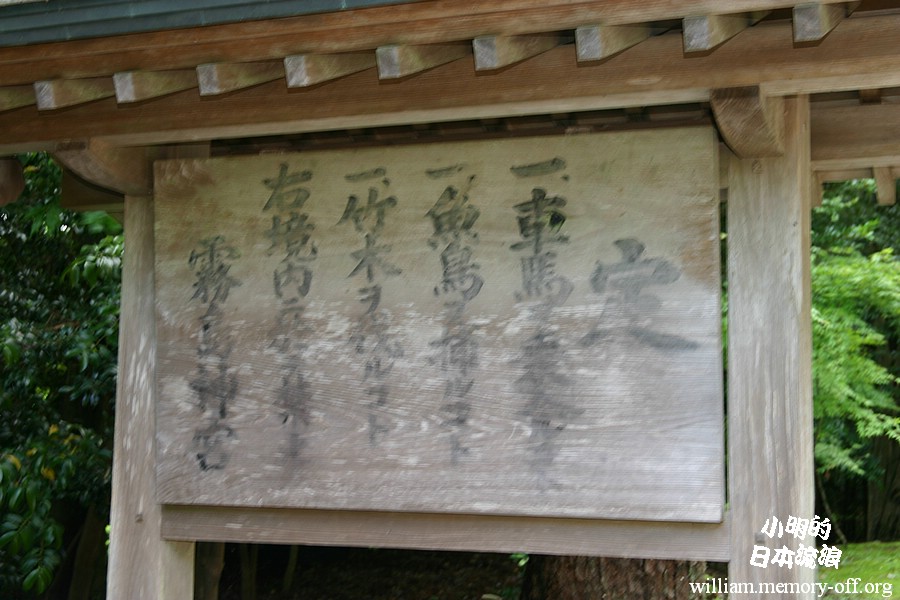 定
一車馬
一魚鳥ヲ捕ルコト
一竹木ヲ伐ルコト
右境内ニ於テ禁止
霧島神宮
小明的
日本流浪
william.memory-off.org